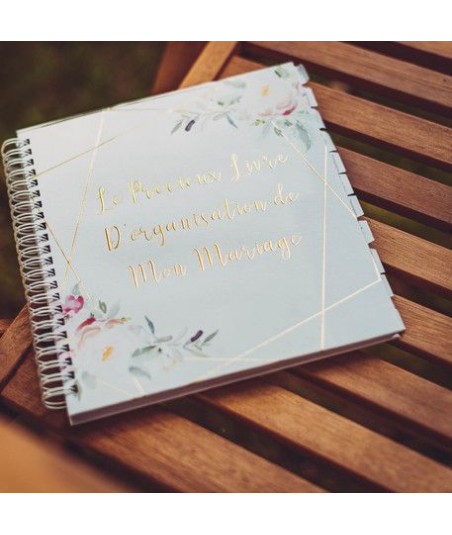 Le Précieux Livre
D'organisation de
Mon Mariage